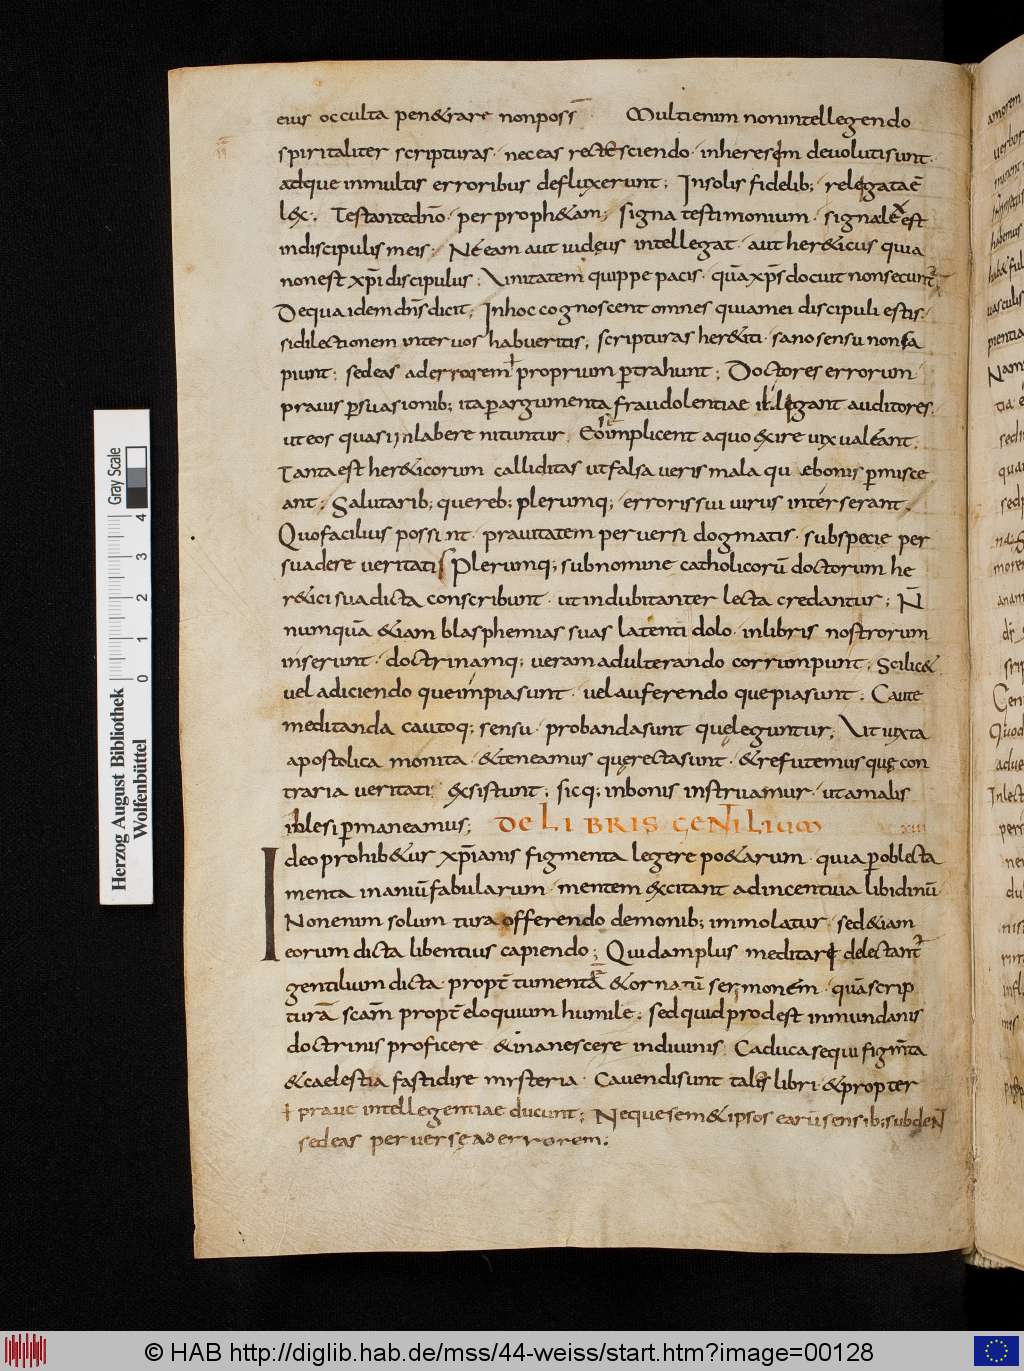 eius occulta pen&rare nonposs̄ Multienim nonintellegendo
spiritaliter scripturas· neceas recte sciendo· inheresim deuolutisunt·
adque inmultis erroribus defluxerunt; Insolis fidelib; relegatae
l&x;. Testantedn̄o· per proph&am; signa testimonium· signa lex est
indiscipulis meis; Ne eam aut iudęus intellegat· aut her&icus quia
nonest xp̄i discipulus; Vnitatem quippe pacis· quā xp̄s docuit nonsecunt̄
Dequa idem dn̄s dicit; Inhoc cognoscent omnes quia mei discipuli estis·
sidilectionem inter uos habueritis; scripturas her&ici· sano sensu nonsa
piunt; sedeas ad errorem proprium ptrahunt; Doctores errorum
prauis psuasionib; ita pargumenta fraudolentiae illegant auditores
ut eos quasi inlabere nituntur. Eos implicent aquo exire uix ualeant.
Tanta est her&icorum calliditas ut falsa ueris mala qu ebonis pmisce
ant; Salutarib; quereb; plerumq; erroris sui uirus interserant.
Quo facilius possint· prauitatem peruersi dogmatis· subspecie per
suadere ueritatis Plerumq; subnomine catholicorū doctorum he
r&ici sua dicta conscribunt· ut indubitanter lecta credantur; N̄
numquā &iam blasphemias suas latenti dolo· inlibris nostrorum
inserunt· doctrinamq; ueram adulterando corrumpunt; Scilic&
uel adiciendo que impia sunt· uel auferendo que pia sunt; Caute
meditanda cautoq; sensu· probanda sunt quęleguntur; Vt iuxta
apostolica monita· &teneamus quęrecta sunt· &refutemus quę con
traria ueritati &xsistunt; sicq; inbonis instruamur· ut amalis
illesi pmaneamus; DE LIBRIS GENTILIUM XIII
Ideo prohib&ur xp̄ianis figmenta legere po&arum· quia poblecta
menta inaniū fabularum· mentem &xcitant ad incentiuia libidinū
Non enim solum tura offerendo demonib; immolatur· sed&iam
eorum dicta libentius capiendo; Quidam plus meditare delectant̄
gentilium dicta· propt̄ tumentē &ornatū sermonem· quā scrip
turā scām propt̄ eloquium humile; sed quid prodest inmundanis
doctrinis proficere &inanescere indiuinis Caduca sequi figm̄ta
&caelestia fastidire mysteria· Cauendi sunt tales libri &propter
praue intellegentiae ducunt; Neque sem&ipsos earū sensib; subdeN̄
sedeas peruersę ad errorem;
Herzog August Bibliothek
Wolfenbüttel
Gray Scale
0 1 2 3 4
© HAB http://diglib.hab.de/mss/44-weiss/start.htm?image=00128